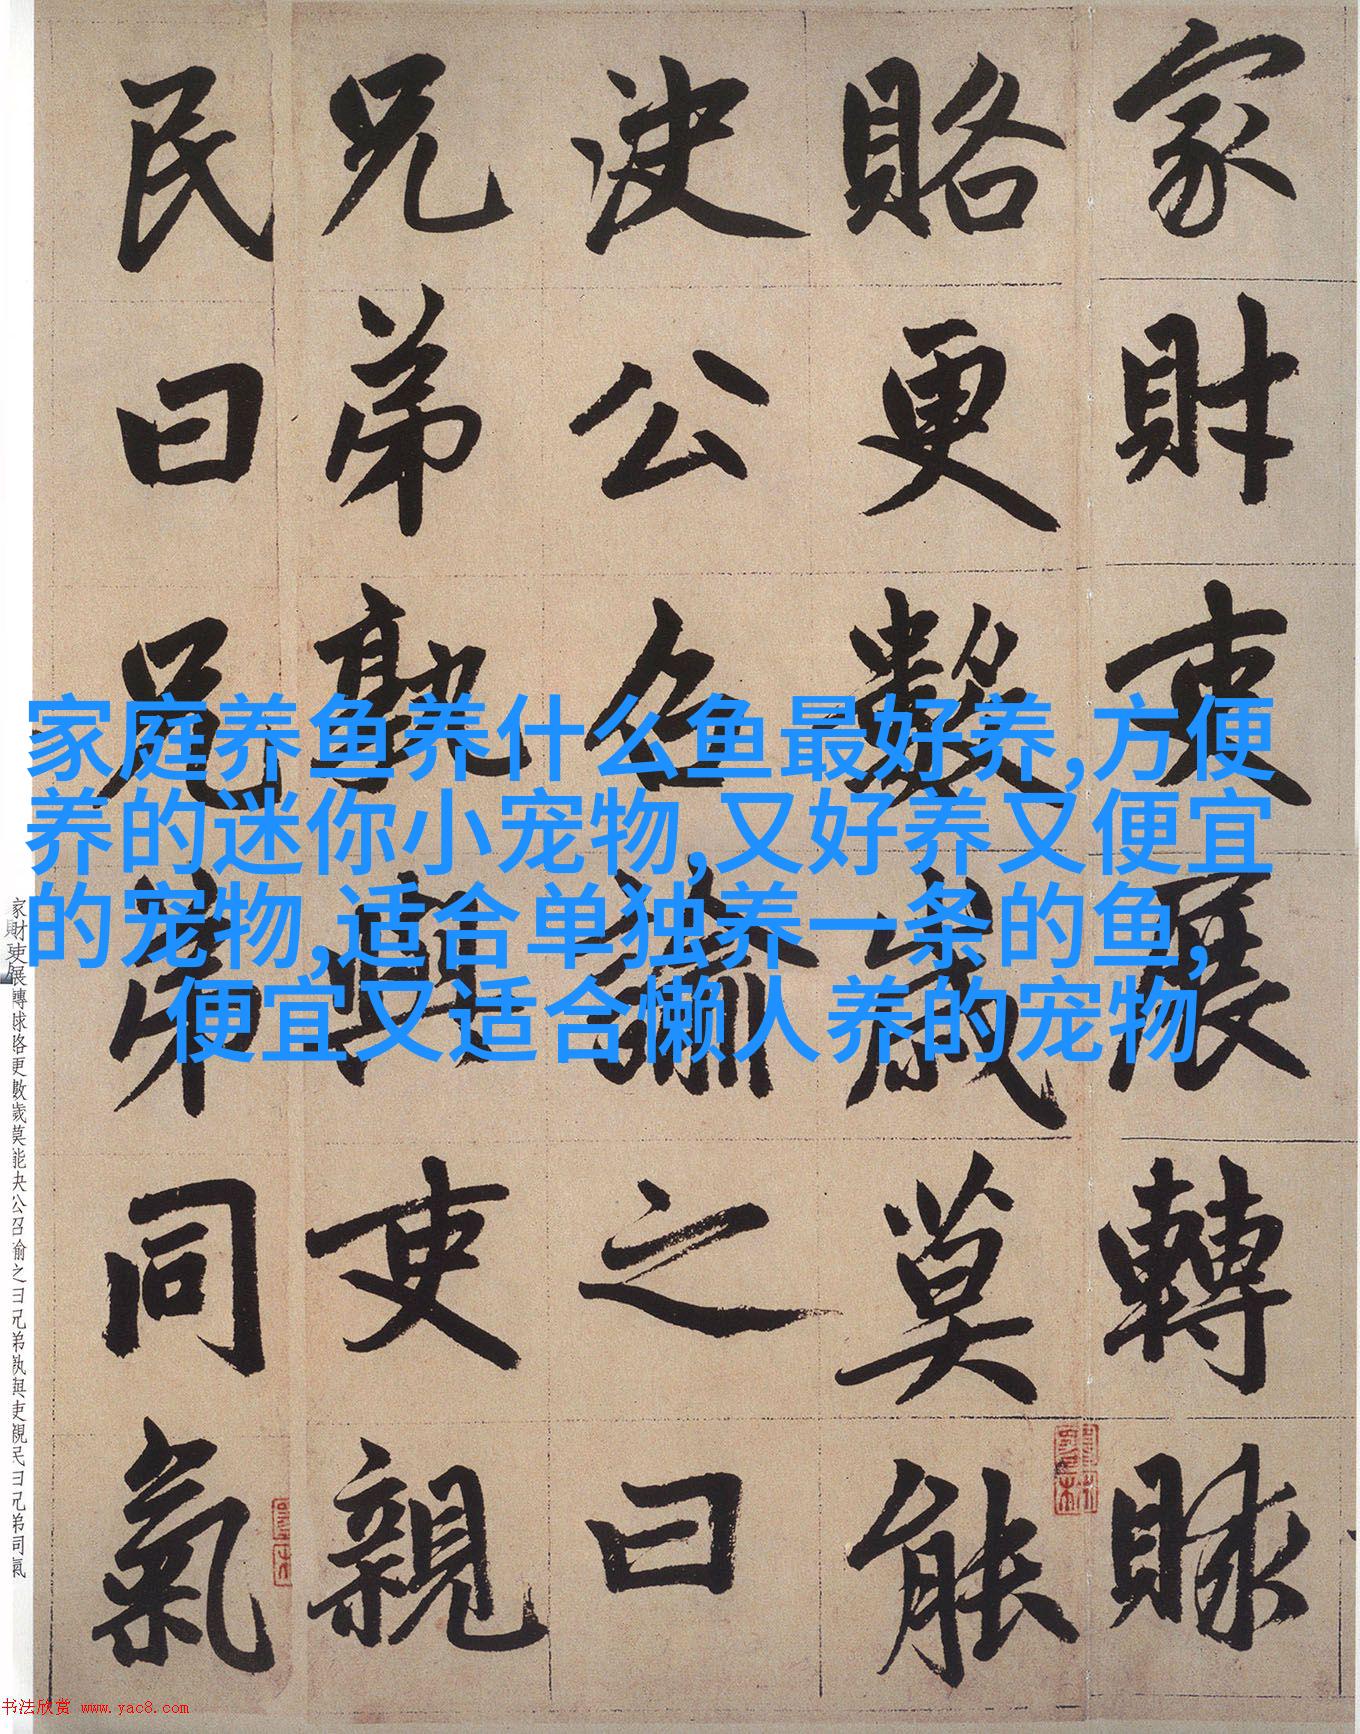 家財吏展轉賕
賂更數歲莫能
決公召諭之曰
兄弟孰與吏親
民曰兄弟同氣
家庭养鱼养什么鱼最好养,方便
养的迷你小宠物,又好养又便宜
的宠物,适合单独养一条的鱼,
便宜又适合懒人养的宠物
家財吏展轉賕賂更數歲莫能決公召諭之曰兄弟孰與吏親民曰兄弟同氣
书法欣赏 www.yac8.com